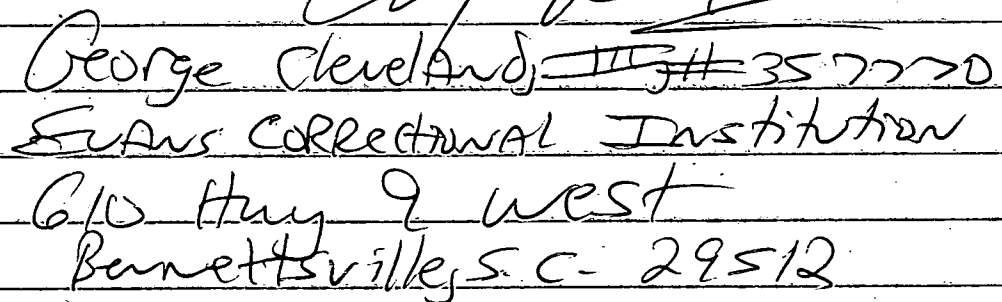 George Cleveland, III, # 357770
Evans Correctional Institution
610 Hwy 9 West
Bennettsville, S.C. 29512